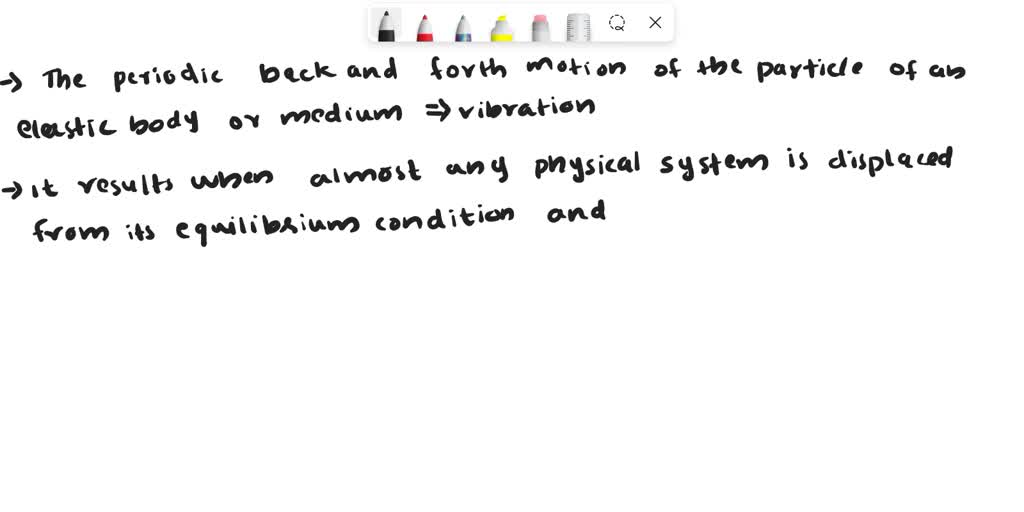 → The periodic back and forth motion of the particle of an
elastic body or medium ⇒ vibration
→ it results when almost any physical system is displaced
from its equilibrium condition and